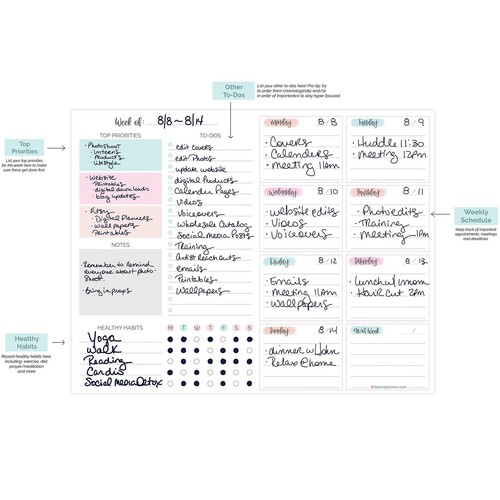 Other
To-Dos
List your other to-dos here! Pro-tip: try
to order them chronologically and/or
in order of importance to stay hyper focused.
Top
Priorities
List your top priorities
for the week here to make
sure these get done first.
Healthy
Habits
Record healthy habits here
including: exercise, diet,
prayer/meditation
and more
Weekly
Schedule
Keep track of important
appointments, meetings
and deadlines
Week of: 8/8 ~ 8/14
TOP PRIORITIES
• Photoshoot
- Interns
- Products
- Lifestyle
• Website
- Printables
- digital downloads
- blog updates
• Etsy
- Digital Planners
- Wall papers
- Printables
NOTES
• Remember to remind
everyone about photo-
shoot.
• Bring in props
TO-DOS
edit covers
edit Photos
update website
digital Products
Calendar Pages
Videos
Voiceovers
Wholesale Catalog
Social Media Posts
Training
Artist reach outs
emails
Printables
Wallpapers
HEALTHY HABITS M T W T F S S
Yoga
Walk
Reading
Cardio
Social Media Detox
Monday 8/8
• Covers
• Calenders
• Meeting 11am
Tuesday 8/9
• Huddle 11:30
• Meeting 12pm
Wednesday 8/10
• website edits
• Videos
• Voiceovers
Thursday 8/11
• Photo edits
• Training
• Meeting - 1pm
Friday 8/12
• Emails
• Meeting 11am
• Wallpapers
Saturday 8/13
• lunch w/mom
• Hair Cut 2pm
Sunday 8/14
• dinner w/John
• Relax @ home
Next Week